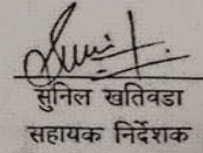 सुनिल खतिवडा
सहायक निर्देशक